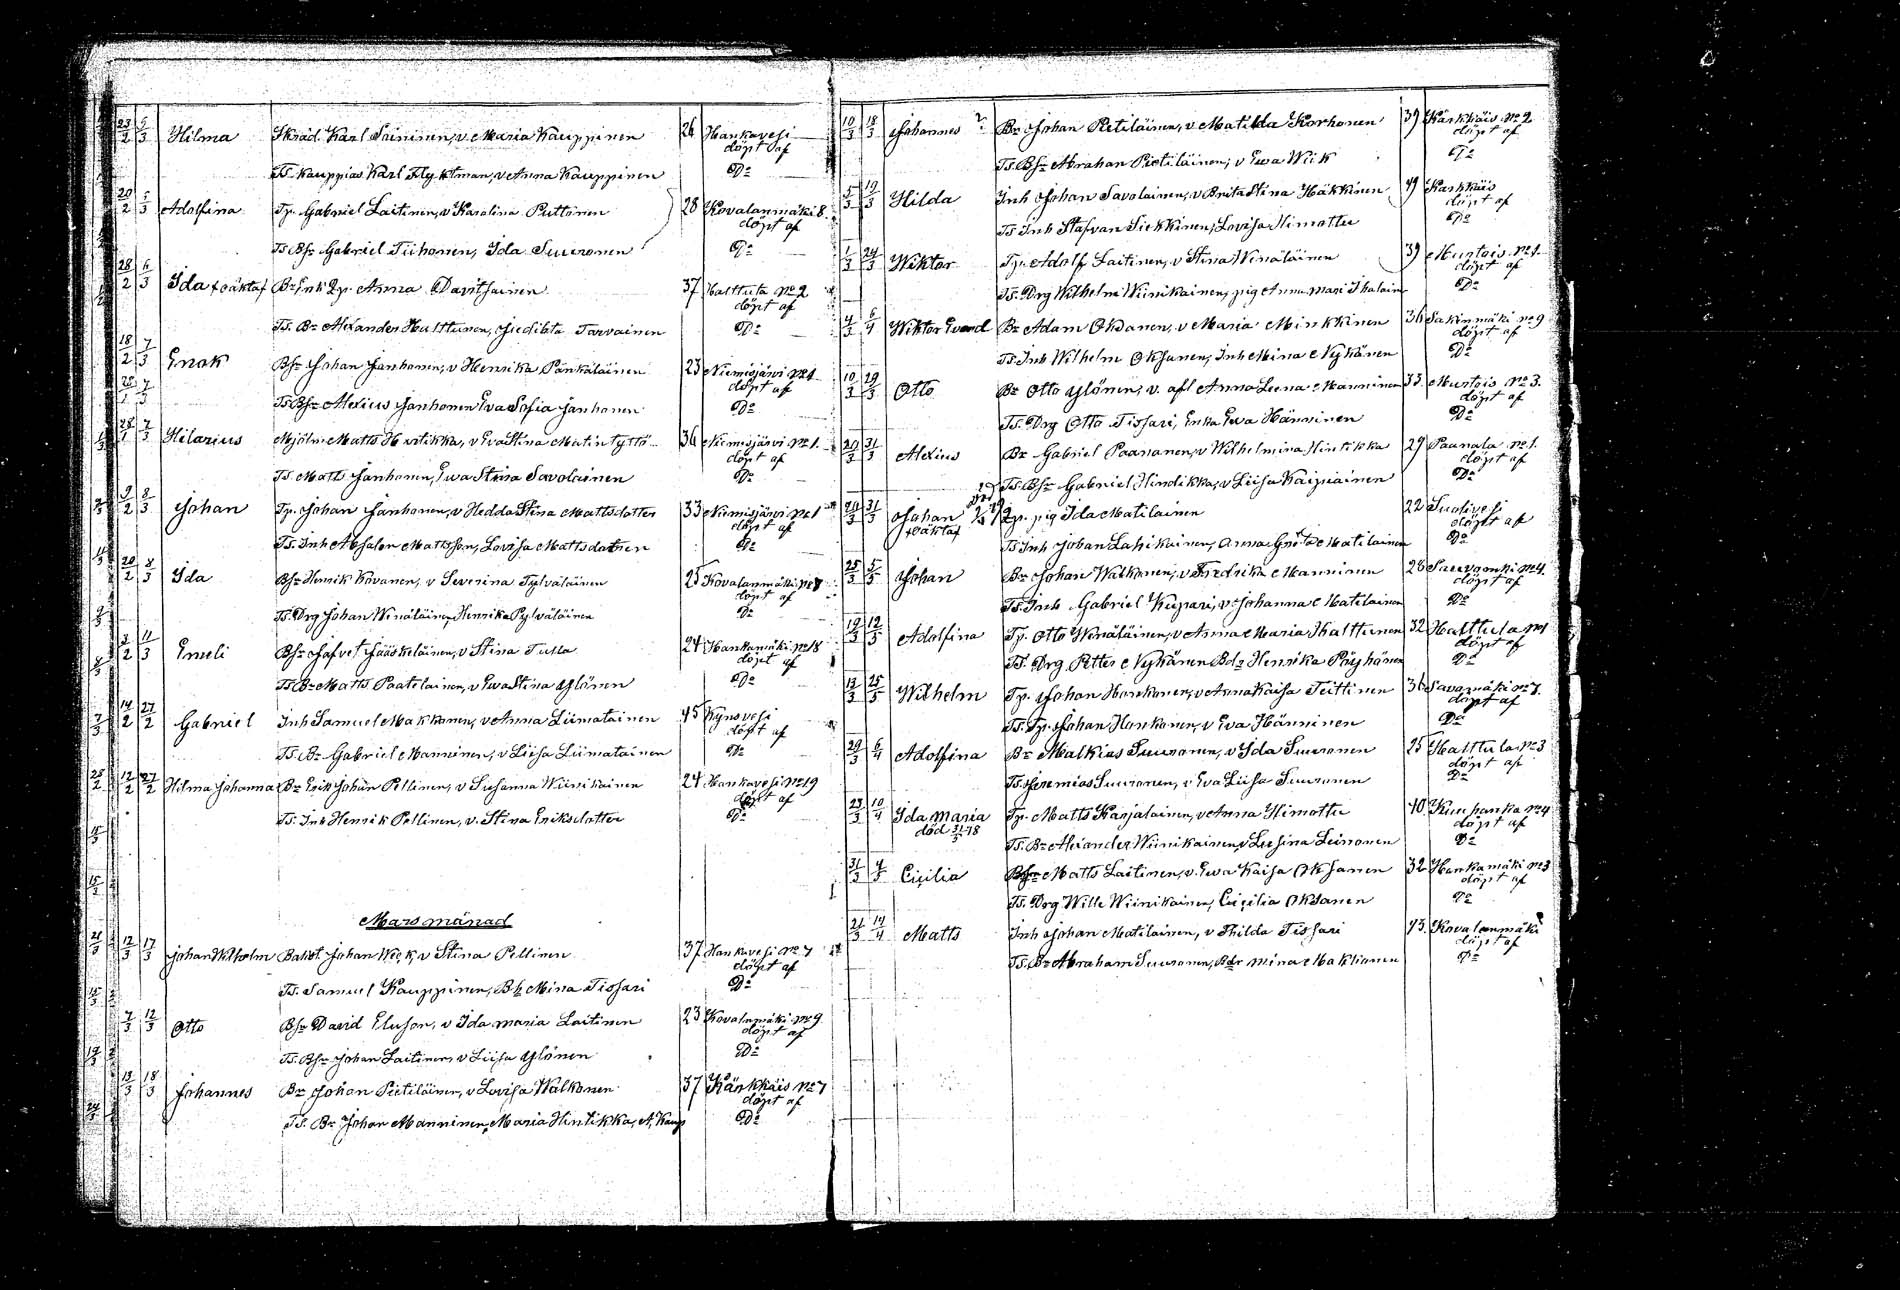 23/2 5/3 Hilma Skräd. Karl Saininen, v Maria Kauppinen 26 Hankavesi
döpt af
Ts. Kauppias Karl Flyktman, v Anna Kauppinen Do
20/2 5/3 Adolfina Tp. Gabriel Laitinen, v Karolina Puttonen 28 Kovalanmäki 8
döpt af
Ts Bsr Gabriel Tiihonen, Ida Suuronen Do
28/2 6/3 Ida foäktaf Br Enk Qp. Anna Davitsainen 37 Halttula No 2
döpt af
Ts. Br Alexander Halttunen, Fredikta Tarvainen Do
18/2 7/3 Enok Bsr Johan Janhonen, v Henrika Pänkäläinen 23 Niemisjärvi No 4
döpt af
7/3
Ts Bsr Alexius Janhonen Eva Sofia Janhonen Do
28/1 7/3 Hilarius Mjöln Matts Hintikka, v Eva Stina Matintyttö 36 Niemisjärvi No 1
döpt af
Ts. Matts Janhonen, Ewa Stina Savolainen Do
9/2 8/3 Johan Tp. Johan Janhonen, v Hedda Stina Mattsdotter 33 Niemisjärvi No 1
döpt af
Ts. Inh Absalon Mattsson, Lovisa Mattsdotter Do
20/2 8/3 Ida Bsr Henrik Kovanen, v Severina Pylväläinen 25 Kovalanmäki No 8
döpt af
Ts. Drg Johan Winäläinen, Henrika Pylväläinen Do
3/2 11/3 Emeli Bsr Jafvet Jääskeläinen, v Stina Tulla 24 Hankamäki No 18
döpt af
Ts Br Matts Paatelainen, v Ewa Stina Ylönen Do
14/2 27/2 Gabriel Inh Samuel Makkonen, v Anna Liimatainen 45 Kynsvesi
döpt af
Ts. Br Gabriel Manninen, v Liisa Liimatainen Do
12/2 27/2 Hilma Johanna Br Erik Johan Pellinen, v Susanna Wiinikainen 24 Hankavesi No 19
döpt af
Ts. Inh Henrik Pellinen, v. Stina Eriksdotter Do
Mars månad
12/3 17/3 Johan Wilhelm Johan Wiik, v Stina Pellinen 37 Hankavesi No 7
döpt af
Ts. Samuel Kauppinen, Mina Tissari Do
7/3 12/3 Otto Bsr David Eluson, v Ida Maria Laitinen 23 Kovalamäki No 9
döpt af
Ts. Bsr Johan Laitinen, v Liisa Ylönen Do
13/3 18/3 Johannes Br Johan Pietiläinen, v Lovisa Walkonen 37 Kärkkäis No 7
döpt af
Ts. Br Johan Manninen, Maria Hintikka, A. Kaup Do
10/3 18/3 Johannes Br Johan Pietiläinen, v Matilda Korhonen 39 Kärkkäis No 2
döpt af
Ts. Bsr Abrahan Pietiläinen, v Ewa Wiik Do
5/3 19/3 Hilda Inh Johan Savolainen, v Brita Stina Häkkinen 49 Karkkäis
döpt af
Ts Inh Stafvan Siekkinen, Lovisa Himottu Do
1/3 24/3 Wiktor Tp. Adolf Laitinen, v Stina Winäläinen 39 Murtois No 4
döpt af
Ts. Drg Wilhelm Wiinikainen, pig Anna Mari Ihalain Do
4/3 6/4 Wiktor Evard Br Adam Oksanen, v Maria Minkkinen 36 Sakinmäki No 9
döpt af
Ts. Inh Wilhelm Oksanen, Inh Mina Nykänen Do
10/3 29/3 Otto Br Otto Ylönen, v. afl Anna Leena Manninen 33. Murtois No 3.
döpt af
Ts. Drg Otto Tissari, Enka Ewa Hänninen Do
20/3 31/3 Alexius Br Gabriel Paananen, v Wilhelmina Hintikka 29 Paanala No 1.
döpt af
Ts. Bsr Gabriel Hindikka, v Liisa Kaipiainen Do
20/3 31/3 Johan Qp. pig Ida Matilainen 22 Suolivesi
foäktaf döpt af
Ts Inh Johan Lahikainen, Anna Greta Matilainen Do
25/3 5/5 Johan Br Johan Walkonen, v Fredrika Manninen 28 Sauvomki No 4.
döpt af
Ts. Inh Gabriel Kupari, v Johanna Matilainen Do
19/3 12/5 Adolfina Tp. Otto Winäläinen, v Anna Maria Halttunen 32 Halttula No 1
döpt af
Ts. Drg Petter Nykänen Bdr Henrika Pöyhönen Do
13/3 25/5 Wilhelm Tp. Johan Honkonen, v Anna Kaisa Teittinen 36 Savomäki No 7.
döpt af
Ts. Tp. Johan Honkonen, v Eva Hänninen Do
29/3 6/4 Adolfina Br Malkias Suuronen, v Ida Suuronen 25 Halttula No 3
döpt af
Ts. Jeremias Suuronen, v Eva Liisa Suuronen Do
23/3 10/4 Ida Maria Tp. Matts Karjalainen, v Anna Himottu 40 Kuuhanka No 4
död 31/3 78 döpt af
Ts. Br Alexander Wiinikainen, v Lusina Leinonen Do
31/3 4/5 Cicilia Bsr Matts Laitinen, v. Ewa Kaisa Oksanen 32 Hankamäki No 3
döpt af
Ts. Drg Wille Wiinikainen, Cicilia Oksanen Do
21/3 14/4 Matts Inh Johan Matilainen, v Thilda Tissari 43. Kovalanmäki
döpt af
Ts. Br Abraham Suuronen, Bdr Mina Makkonen Do